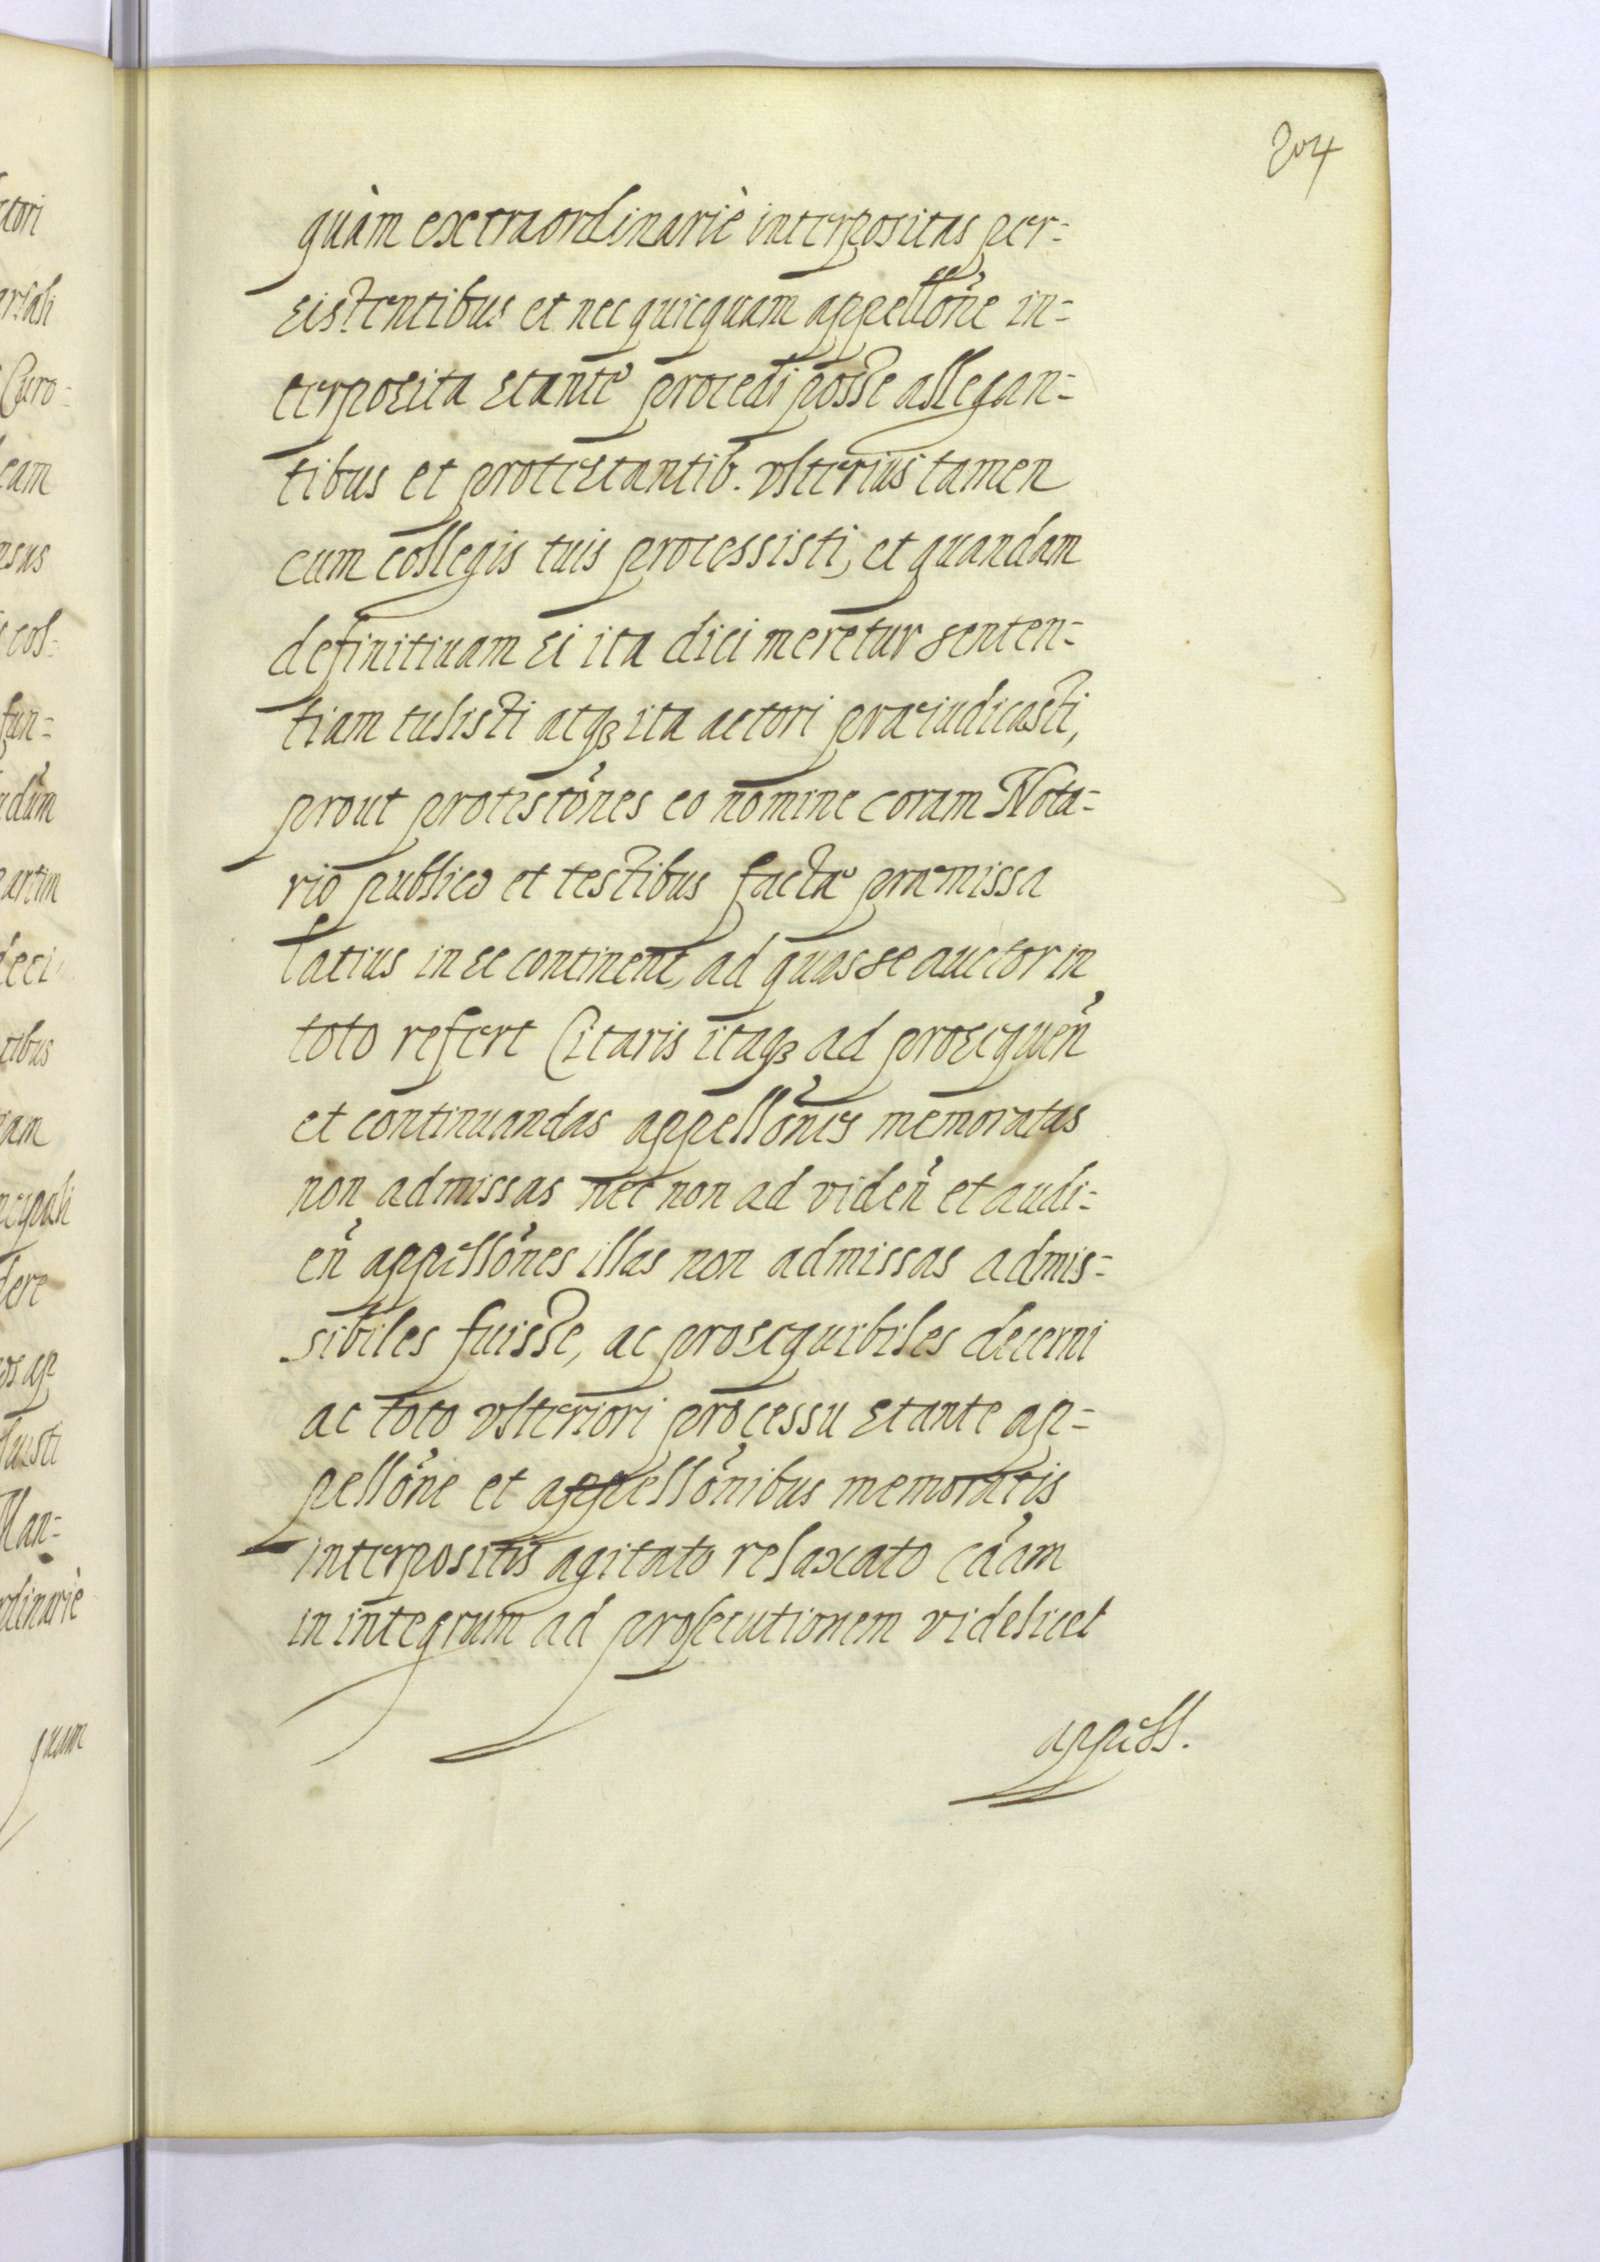 204
quàm extraordinariè interpositas per-
sistentibus et nec quicquam appellõne in-
terposita stante procedi posse allegan-
tibus et protestantib. vlterius tamen
cum collegis tuis processisti, et quandam
definitiuam si ita dici meretur senten-
tiam tulisti atqꝫ ita actori præiudicasti,
prout protestõnes eo nomine coram Nota-
rio publico et testibus factæ præmissa
latius in se continent, ad quas se auctor in
toto refert Citaris itaqꝫ ad prosequeñ
et continuandas appellõnes memoratas
non admissas nec non ad videñ et audi-
eñ appellõnes illas non admissas admis-
sibiles fuisse, ac prosequibiles decerni
ac toto vlteriori processu stante ap-
pellõne et appellõnibus memoratis
interpositis agitato relaxato cãam
in integrum ad prosecutionem videlicet
appell.